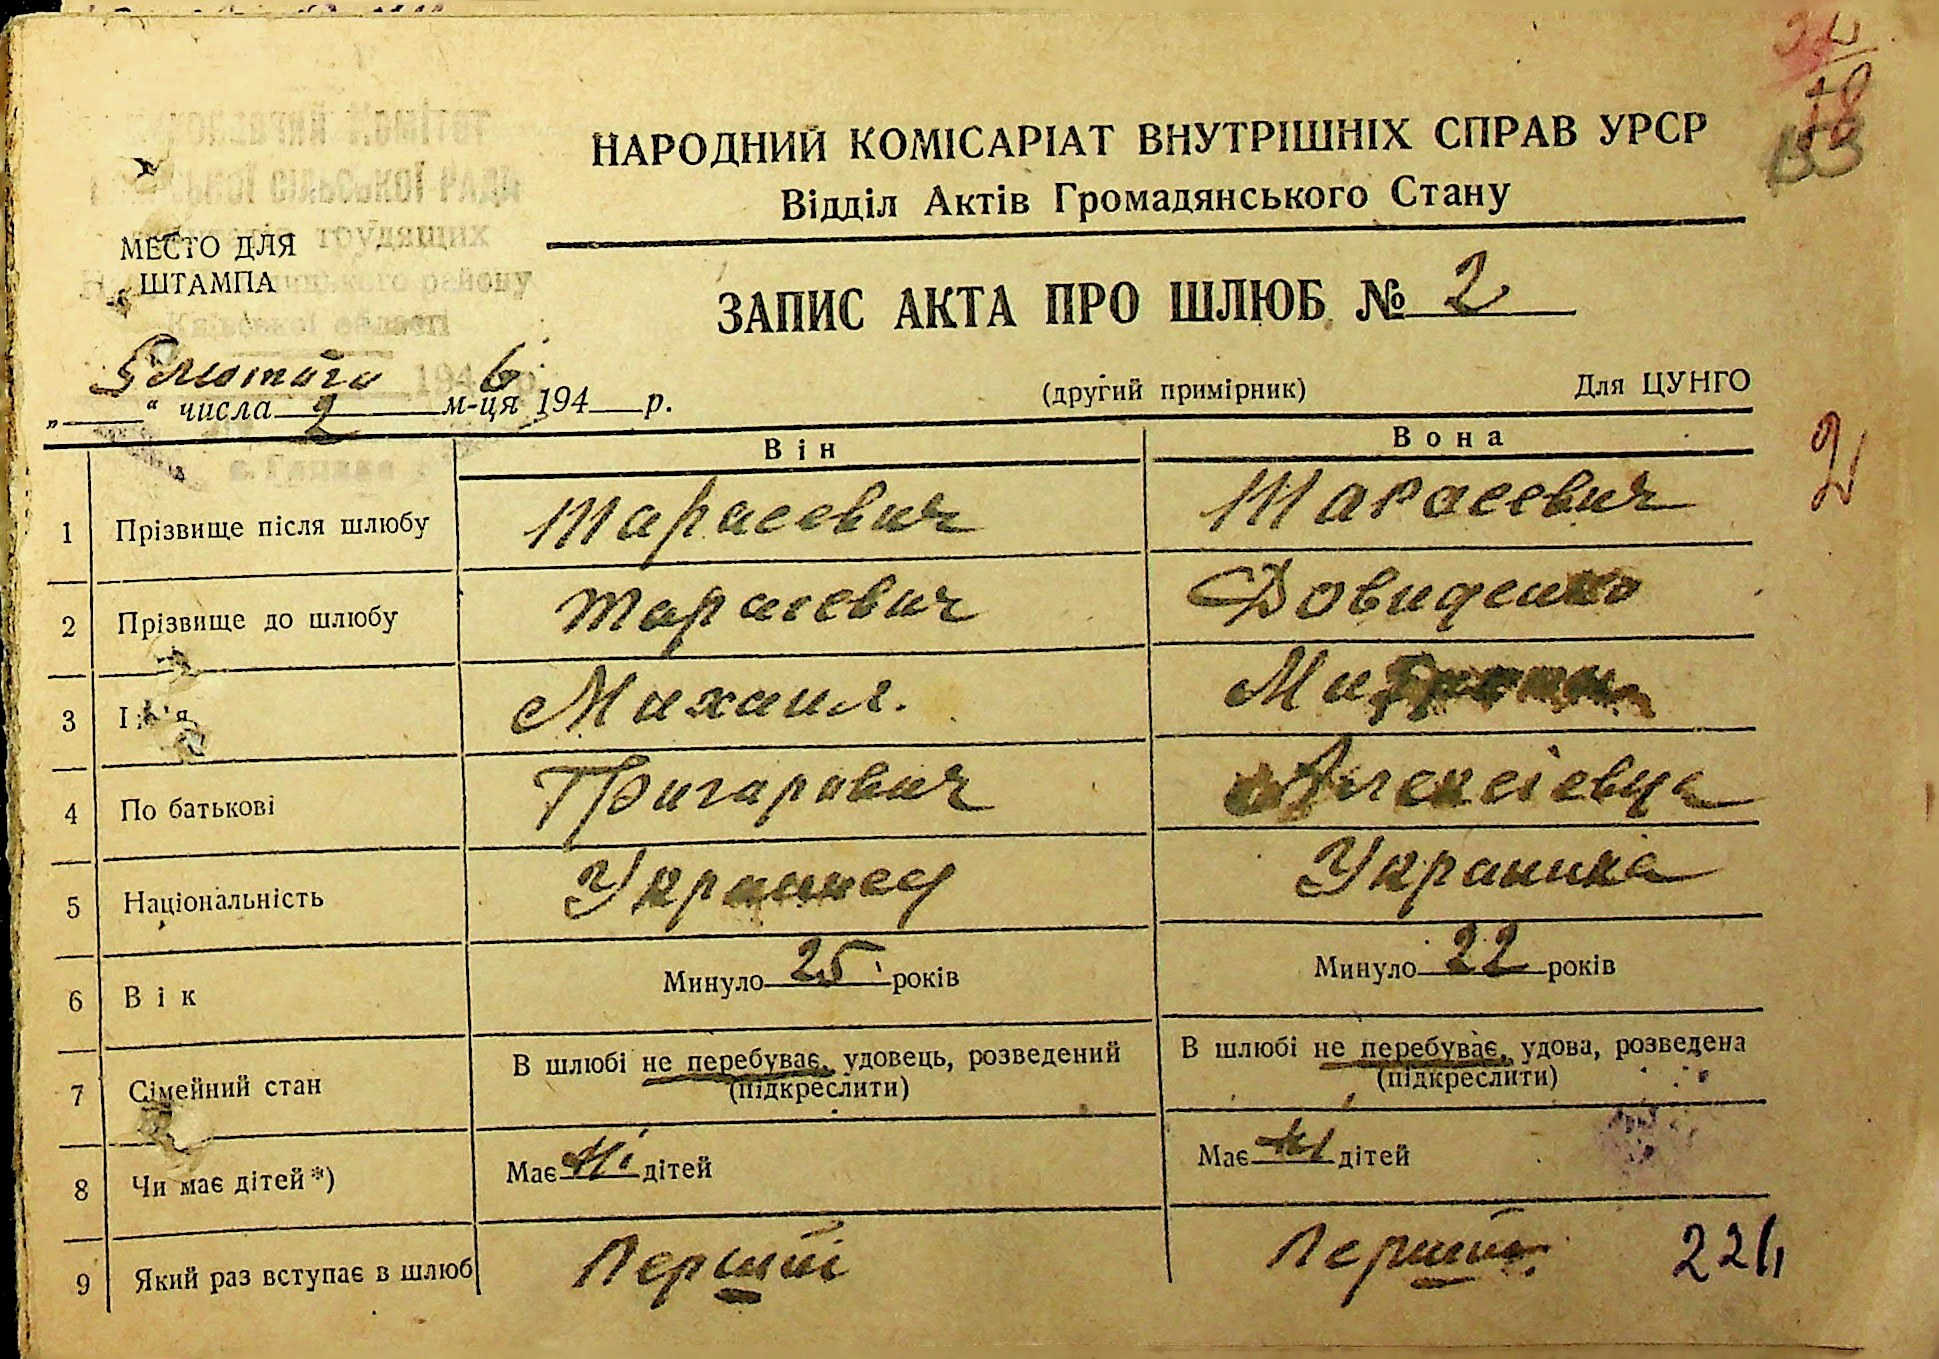 НАРОДНИЙ КОМІСАРІАТ ВНУТРІШНІХ СПРАВ УРСР
Відділ Актів Громадянського Стану
МЕСТО ДЛЯ
ШТАМПА
трудящих
району
Київської області
ЗАПИС АКТА ПРО ШЛЮБ № 2
5 лютого 1946 р.
„ “ числа 2 м-ця 194 р.
(другий примірник)
Для ЦУНГО
Він Вона
2
1 Прізвище після шлюбу Тарасевич Тарасевич
2 Прізвище до шлюбу Тарасевич Довиденко
3 Михаил.
4 По батькові Григарович Алексіевна
5 Національність Украинец Украинка
6 Вік Минуло 25 років Минуло 22 років
7 Сімейний стан В шлюбі не перебуває, удовець, розведений В шлюбі не перебуває, удова, розведена
(підкреслити) (підкреслити)
8 Чи має дітей *) Має ні дітей Має ні дітей
9 Який раз вступає в шлюб Перший Перший